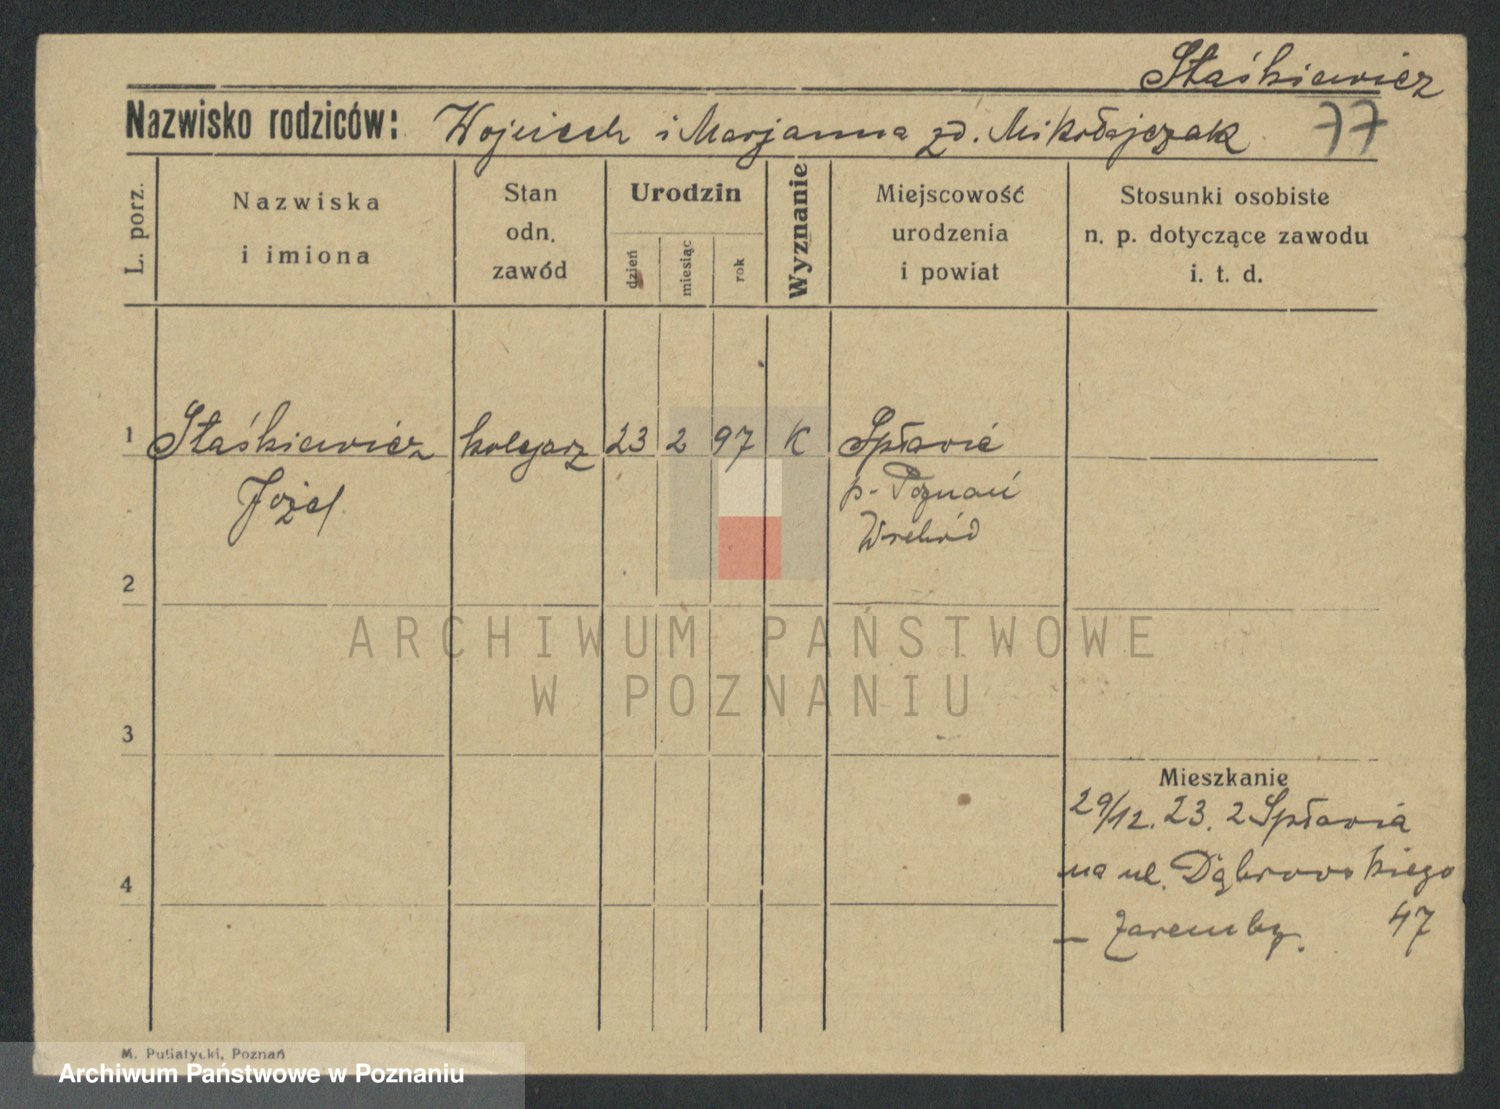 Staśkiewicz
Nazwisko rodziców: Wojciech i Marjanna zd. Mikołajczak 77
L. porz.
Nazwiska
i imiona
Stan
odn.
zawód
Urodzin
dzień
miesiąc
rok
Wyznanie
Miejscowość
urodzenia
i powiat
Stosunki osobiste
n. p. dotyczące zawodu
i. t. d.
1 Staśkiewicz kolejarz 23 2 97 K Spławie
Józef
p. Poznań
Wschód
2
3
4
Mieszkanie
29/12. 23. z Spławia
na ul. Dąbrowskiego
— Zaremby. 47
ARCHIWUM PAŃSTWOWE
W POZNANIU
M. Putiatycki, Poznań
Archiwum Państwowe w Poznaniu